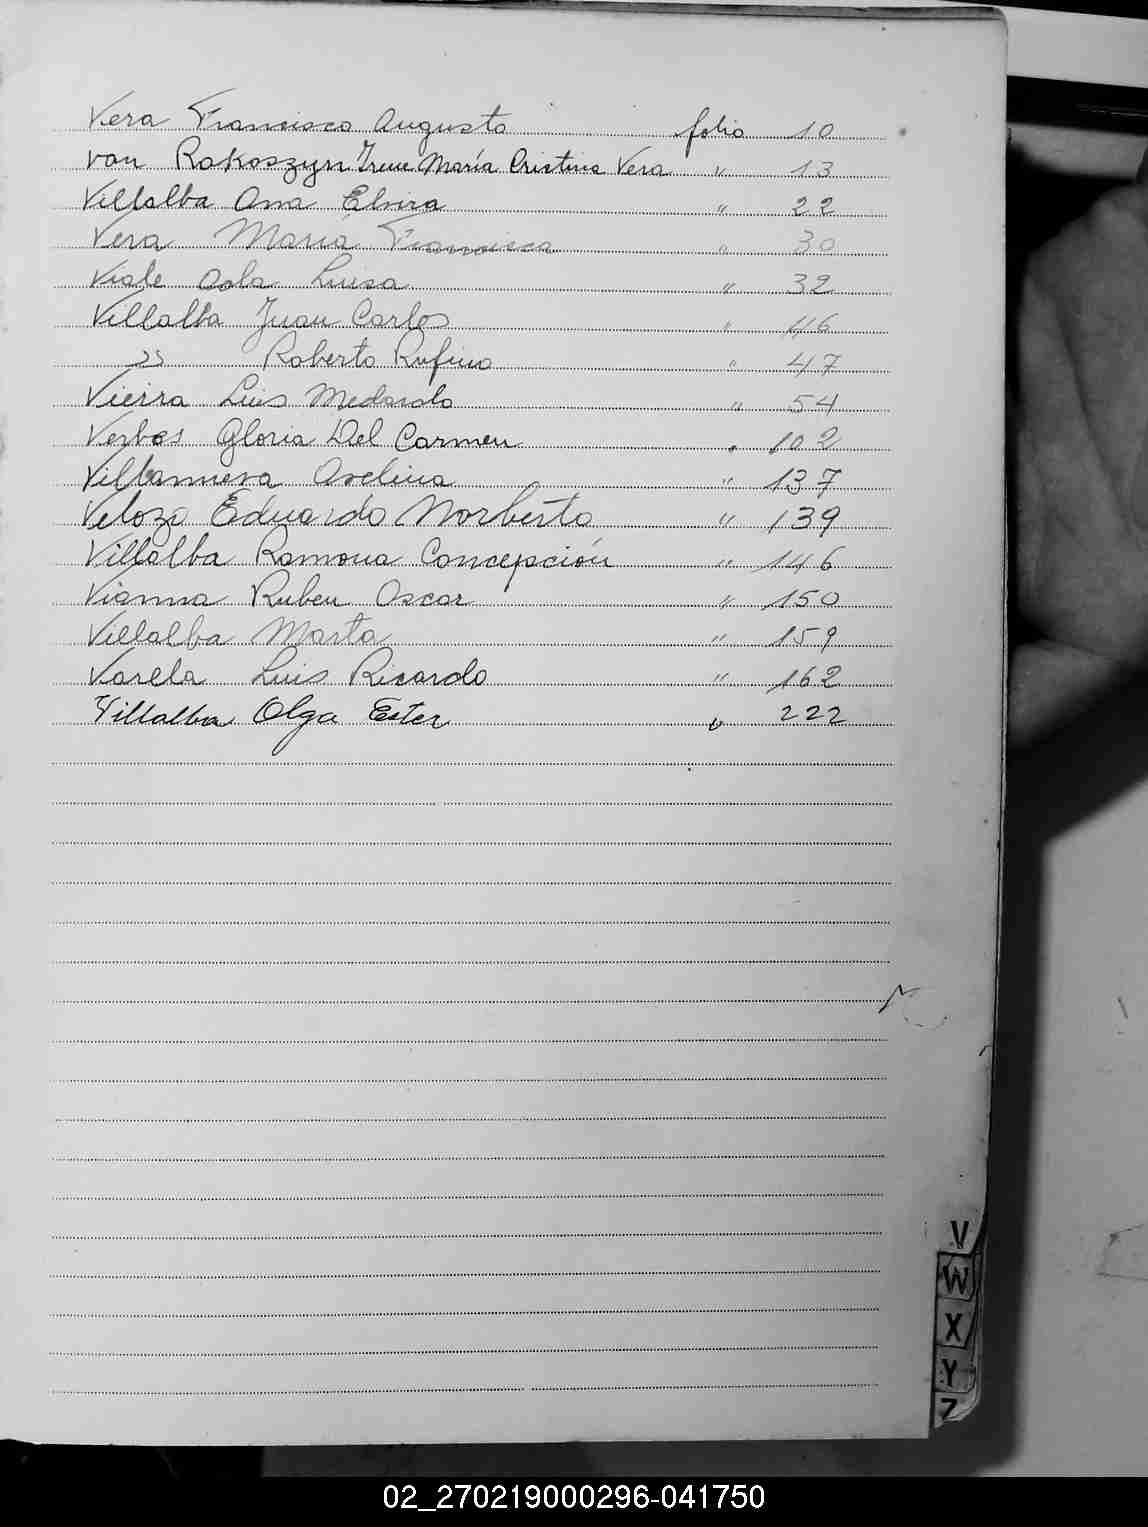 Vera Francisco Augusto folio 10
von Rakoszyn Irene María Cristina Vera " 13
Villalba Ana Elvira " 22
Vera Maria Francisca " 30
Viale Luisa " 32
Villalba Juan Carlos " 46
" Roberto Rufino " 47
Vieira Luis Medardo " 54
Gloria Del Carmen " 102
Villanueva Avelina " 137
Velozo Eduardo Norberto " 139
Villalba Ramona Concepción " 146
Vianna Ruben Oscar " 150
Villalba Marta " 159
Varela Luis Ricardo " 162
Villalba Olga Ester " 222
V
W
X
Y
Z
02_270219000296-041750